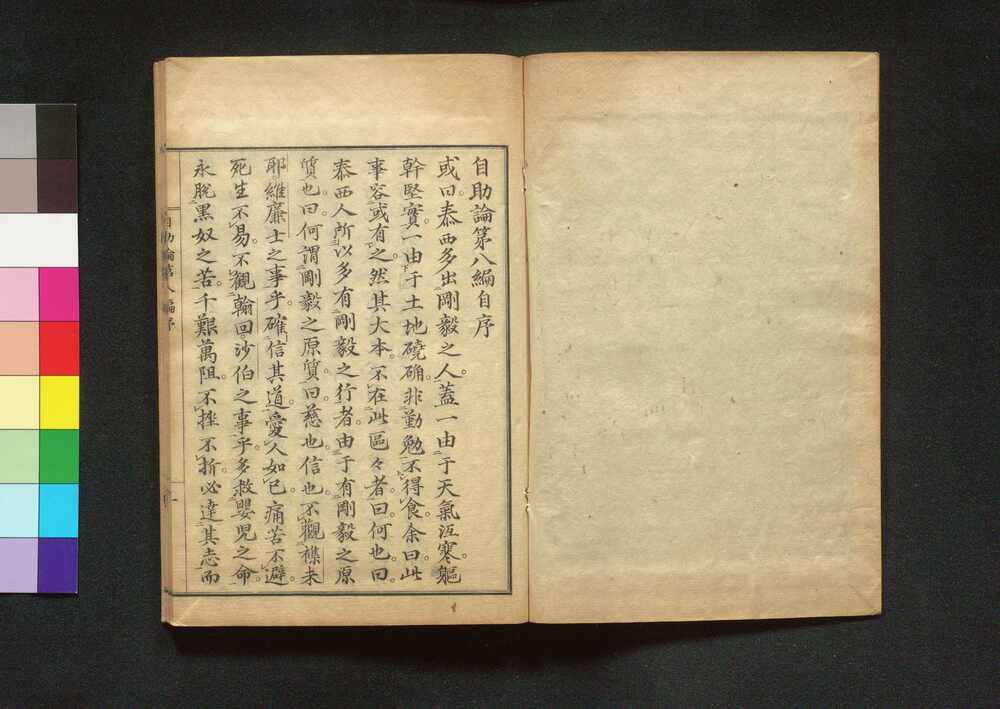 自助論第八編自序
或曰泰西多出剛毅之人。蓋一由于天氣沍寒。軀
幹堅實。一由于土地磽确。非勤勉不得食。余曰此
事容或有之。然其大本。不在此區々者。曰何也。曰
泰西人所以多有剛毅之行者。由于有剛毅之原
質也。曰何謂剛毅之原質。曰慈也。信也。不觀襍未
耶維廉士之事乎。確信其道。愛人如己。痛苦不避。
死生不易。不觀翰回沙伯之事乎。多救嬰児之命。
永脫黒奴之苦。千艱萬阻。不挫不折。必達其志而
自助論第八編序